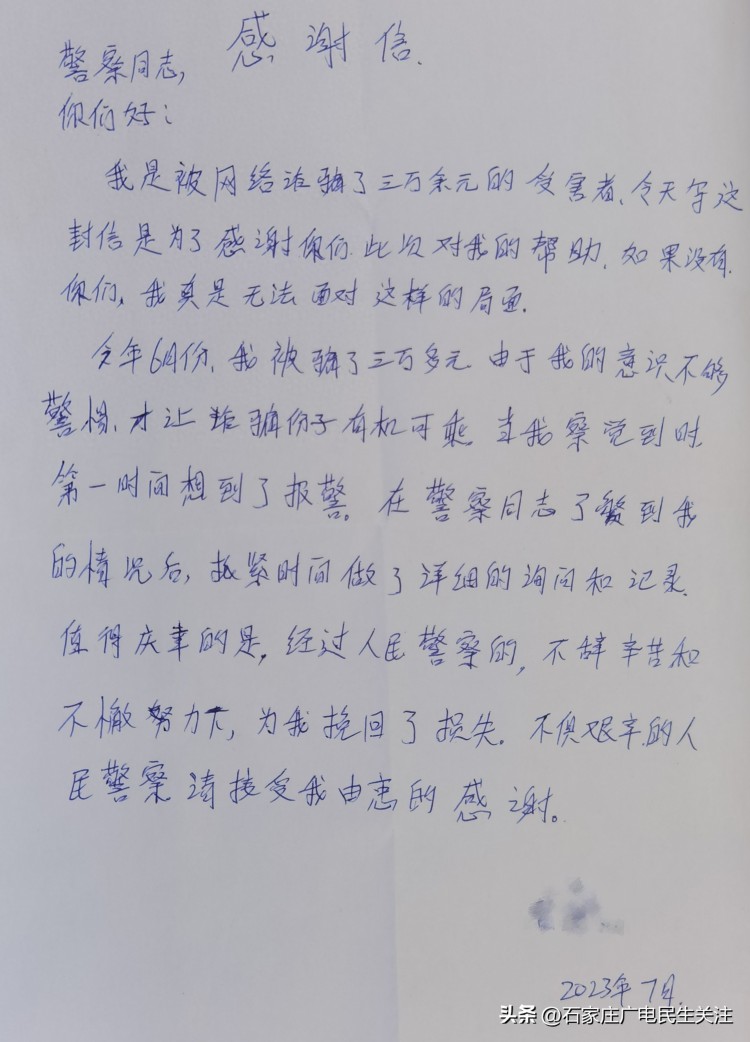 感谢信.
警察同志,
你们好:
我是被网络诈骗了三万余元的受害者、今天写这
封信是为了感谢你们此次对我的帮助、如果没有
你们,我真是无法面对这样的局面.
今年6月份、我被骗了三万多元由于我的意识不够
警惕、才让诈骗份子有机可乘 当我察觉到时
第一时间想到了报警。在警察同志了解到我
的情况后,抓紧时间做了详细的询问和记录.
值得庆幸的是,经过人民警察的,不辞辛苦和
不懈努力下,为我挽回了损失.不惧艰辛的人
民警察请接受我由衷的感谢。
2023年7月.
头条 @石家庄广电民生关注